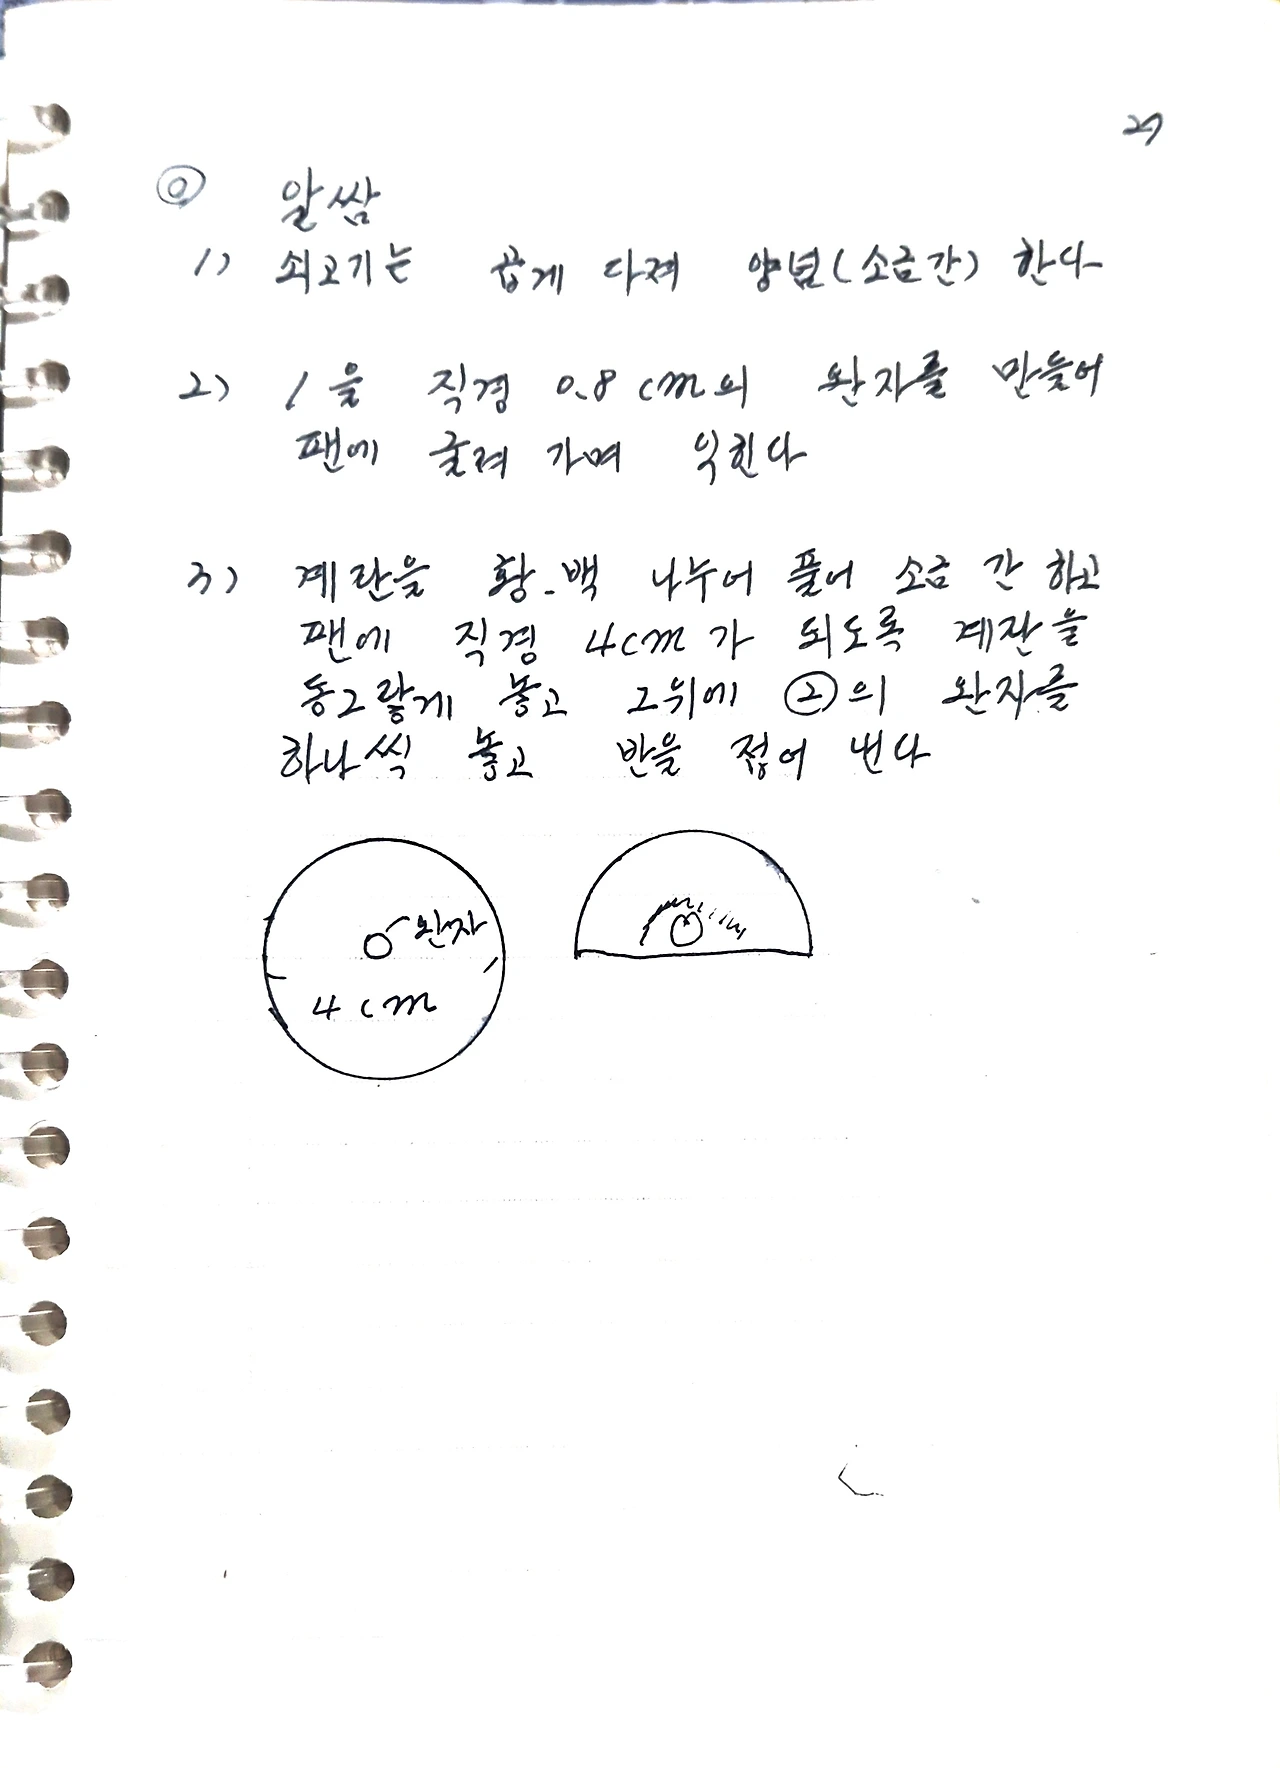 27
◎ 알쌈
1) 쇠고기는 곱게 다져 양념(소금간) 한다
2) 1을 직경 0.8cm의 완자를 만들어
팬에 굴려 가며 익힌다
3) 계란을 황-백 나누어 풀어 소금 간 하고
팬에 직경 4cm가 되도록 계란을
동그랗게 놓고 그위에 ②의 완자를
하나씩 놓고 반을 접어 낸다
완자
4cm